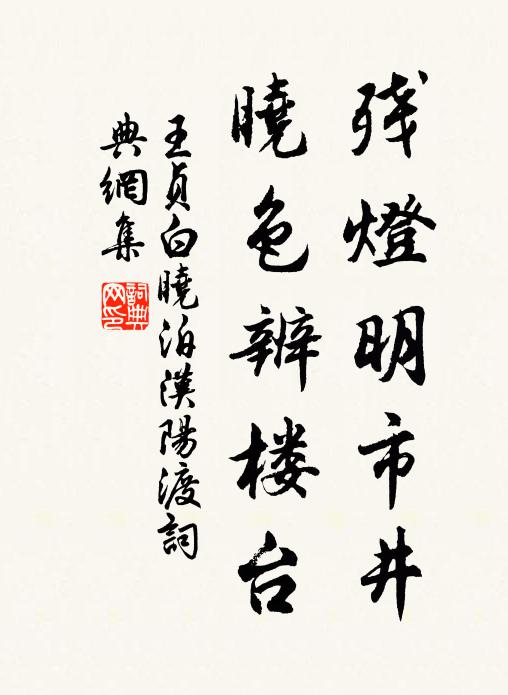 残燈明市井
曉色辨楼台
王贞白曉泊漢陽渡詞
典網集
詞典网印